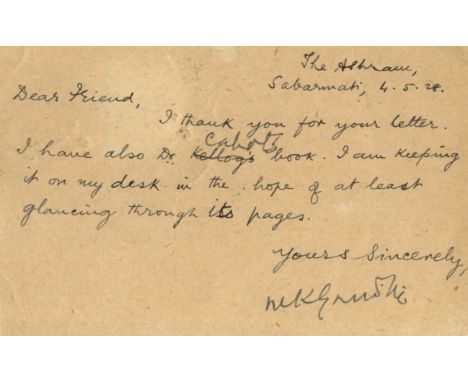 The Ashram,
Sabarmati, 4.5.28.
Dear Friend,
I thank you for your letter.
Cabot's
I have also Dr. Kellog's book. I am keeping
it on my desk in the hope of at least
glancing through its pages.
Yours Sincerely,
MKGandhi